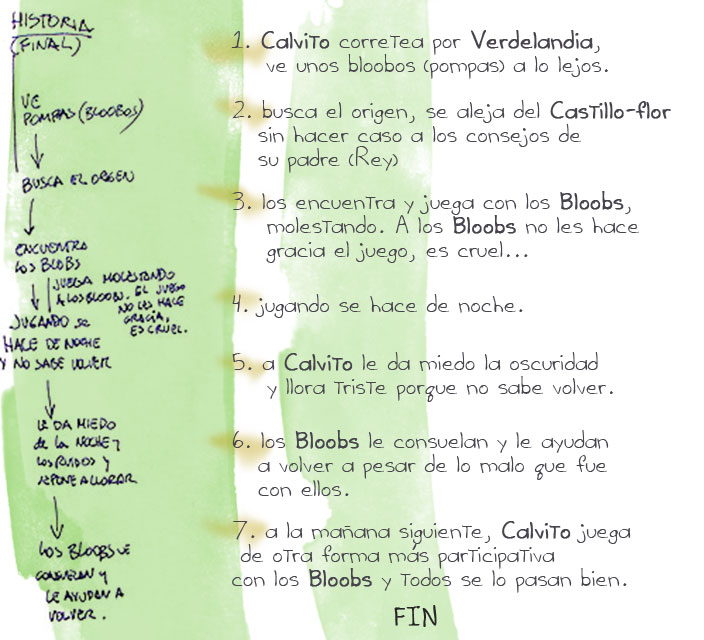 HISTORIA
(FINAL)
VE
POMPAS (BLOOBOS)
BUSCA EL ORIGEN
ENCUENTRA
LOS BLOBS
JUEGA MOLESTANDO
A LOS BLOOM. EL JUEGO
NO LES HACE
GRACIA,
ES CRUEL.
JUGANDO SE
HACE DE NOCHE
Y NO SABE VOLVER
LE DA MIEDO
de LA NOCHE Y
LOS RUIDOS Y
SE PONE A LLORAR
LOS BLOOBS LE
CONSUELAN Y
LE AYUDAN A
VOLVER.
1. Calvito corretea por Verdelandia,
ve unos bloobos (pompas) a lo lejos.
2. busca el origen, se aleja del Castillo-flor
sin hacer caso a los consejos de
su padre (Rey)
3. los encuentra y juega con los Bloobs,
molestando. A los Bloobs no les hace
gracia el juego, es cruel...
4. jugando se hace de noche.
5. a Calvito le da miedo la oscuridad
y llora triste porque no sabe volver.
6. los Bloobs le consuelan y le ayudan
a volver a pesar de lo malo que fue
con ellos.
7. a la mañana siguiente, Calvito juega
de otra forma más participativa
con los Bloobs y todos se lo pasan bien.
FIN